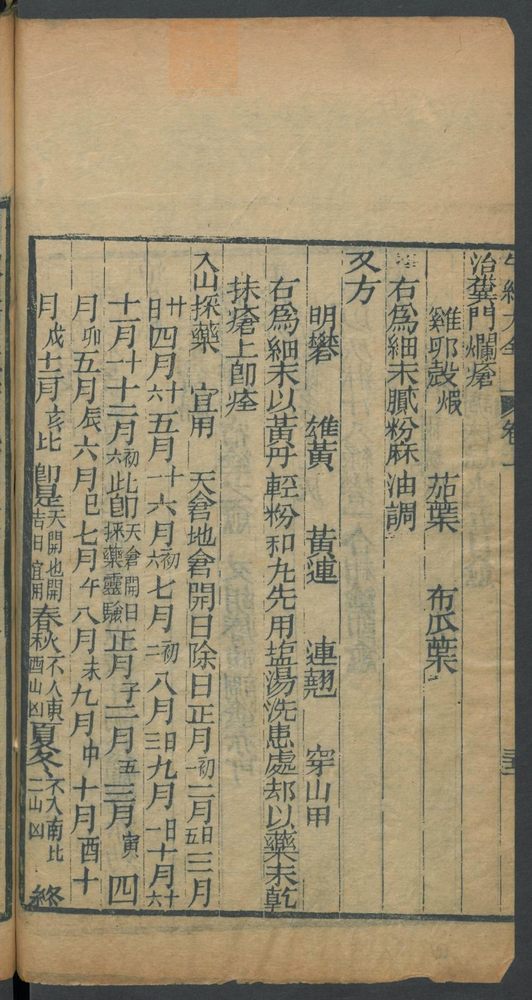 治糞門爛瘡
雞卵殼 煆 茄葉 布瓜葉
右爲細末膩粉麻油調
又方
明礬 雄黃 黃連 連翹 穿山甲
右爲細末以黃丹輕粉和九先用塩湯洗患處却以藥末乾
抹瘡上卽痊
入山採藥 宜用 天倉地倉開日除日正月初一二月五日三月
廿日四月六十五月十六月初六七月初二八月三日九月一日十月十六
十一月十十二月初六此卽天倉開日採藥靈驗正月子二月五三月寅四
月卯五月辰六月巳七月午八月未九月申十月酉十
月戌十二月亥比卽是天開也開吉日宜用春秋不入東西山凶夏冬不入南比二山凶 終